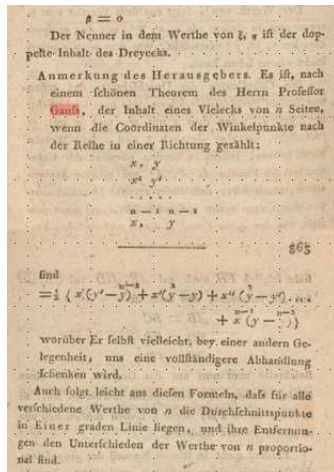 p = o
Der Nenner in dem Werthe von ξ, η iſt der dop-
pelte Inhalt des Dreyecks.
Anmerkung des Herausgebers. Es iſt, nach
einem ſchönen Theorem des Herrn Profeſſor
Gauſs, der Inhalt eines Vielecks von n Seiten,
wenn die Coordinaten der Winkelpunkte nach
der Reihe in einer Richtung gezählt:
x, y
x' y'
. . . .
n-1 n-1
x, y
363
find
=½ { x (y'—y) + x' (y—y) + x'' (y—y') . . .
+ x (y — ) }
worüber Er ſelbſt vielleicht, bey einer andern Ge-
legenheit, uns eine vollſtändigere Abhandlung
ſchenken wird.
Auch folgt leicht aus dieſen Formeln, daſs für alle
verſchiedene Werthe von n die Durchſchnittspunkte
in Einer graden Linie liegen, und ihre Entfernun-
gen den Unterſchieden der Werthe von n proportio-
nal find.